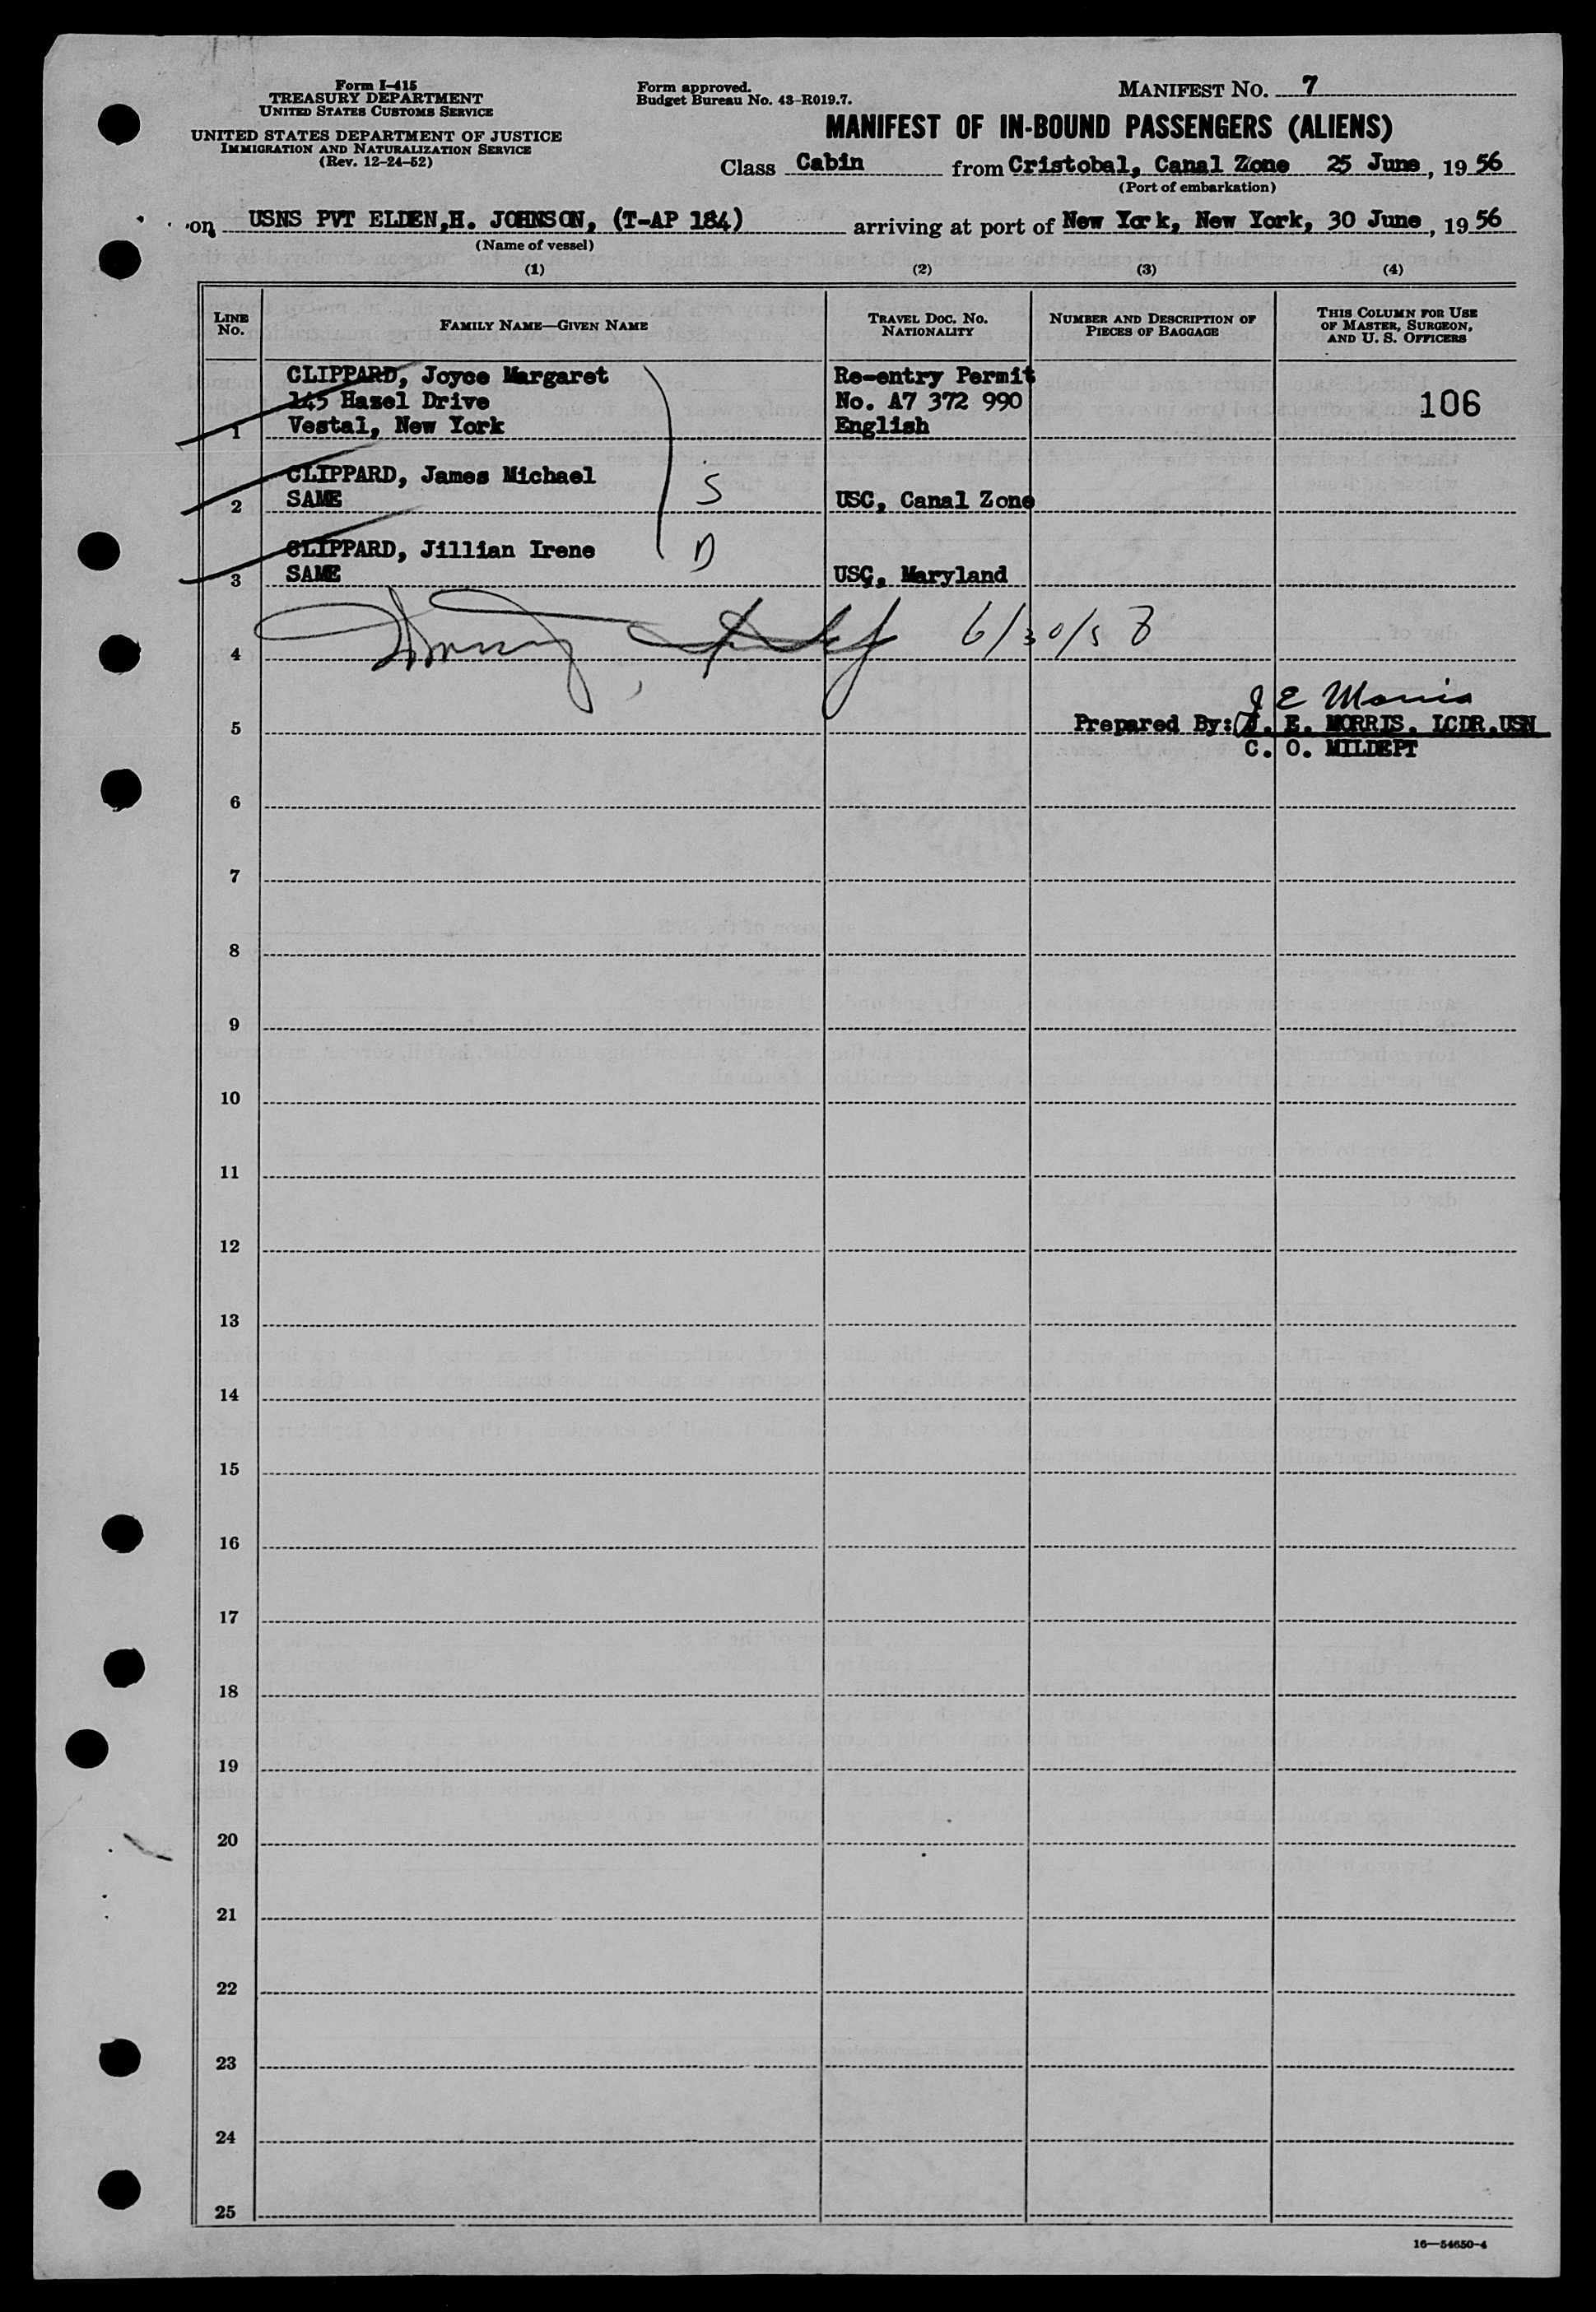 Form I-415
TREASURY DEPARTMENT
UNITED STATES CUSTOMS SERVICE
UNITED STATES DEPARTMENT OF JUSTICE
IMMIGRATION AND NATURALIZATION SERVICE
(Rev. 12-24-52)
Form approved.
Budget Bureau No. 43-R019.7.
MANIFEST NO. 7
MANIFEST OF IN-BOUND PASSENGERS (ALIENS)
Class Cabin from Cristobal, Canal Zone 25 June, 19 56
(Port of embarkation)
on USNS PVT ELDEN,H. JOHNSON, (T-AP 184) arriving at port of New York, New York, 30 June, 19 56
(Name of vessel)
(1) (2) (3) (4)
LINE NO.
FAMILY NAME—GIVEN NAME
TRAVEL DOC. NO. NATIONALITY
NUMBER AND DESCRIPTION OF PIECES OF BAGGAGE
THIS COLUMN FOR USE OF MASTER, SURGEON, AND U. S. OFFICERS
CLIPPARD, Joyce Margaret Re-entry Permit
145 Hazel Drive No. A7 372 990 106
1 Vestal, New York English
CLIPPARD, James Michael S
2 SAME USC, Canal Zone
CLIPPARD, Jillian Irene D
3 SAME USC, Maryland
4 6/30/56
J E Morris
5 Prepared By: J. E. MORRIS, LCDR.USN
C. O. MILDEPT
6
7
8
9
10
11
12
13
14
15
16
17
18
19
20
21
22
23
24
25
16—54650-4